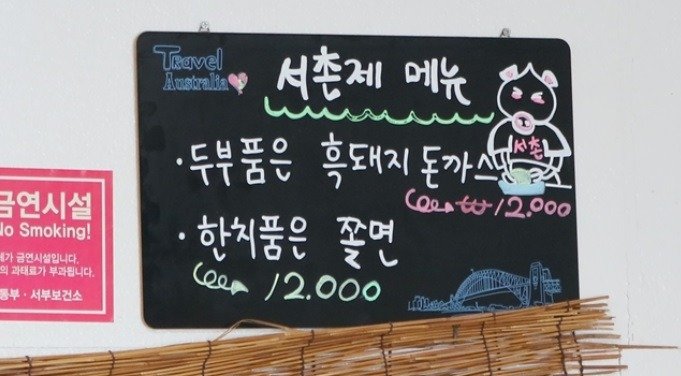 Travel
Australia
서촌제 메뉴
· 두부품은 흑돼지 돈까스
₩12.000
· 한치품은 쫄면
12.000
서촌
금연시설
No Smoking!
가 금연시설입니다.
의 과태료가 부과됩니다.
동부 · 서부보건소